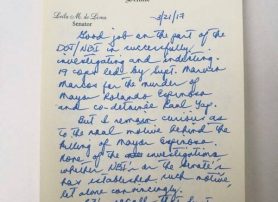 Senate
Leila M. de Lima
Senator
3/21/17
Good job on the part of the
DOJ/NBI in successfully
investigating and indicting
19 cops led by Supt. Marvin
Marcos for the murder of
Mayor Rolando Espinosa
and co-detainee Raul Yap.
But I remain curious as
to the real motive behind the
killing of Mayor Espinosa.
None of the investigations
whether NBI's or the Senate's
has established such motive,
let alone convincingly.
recall that